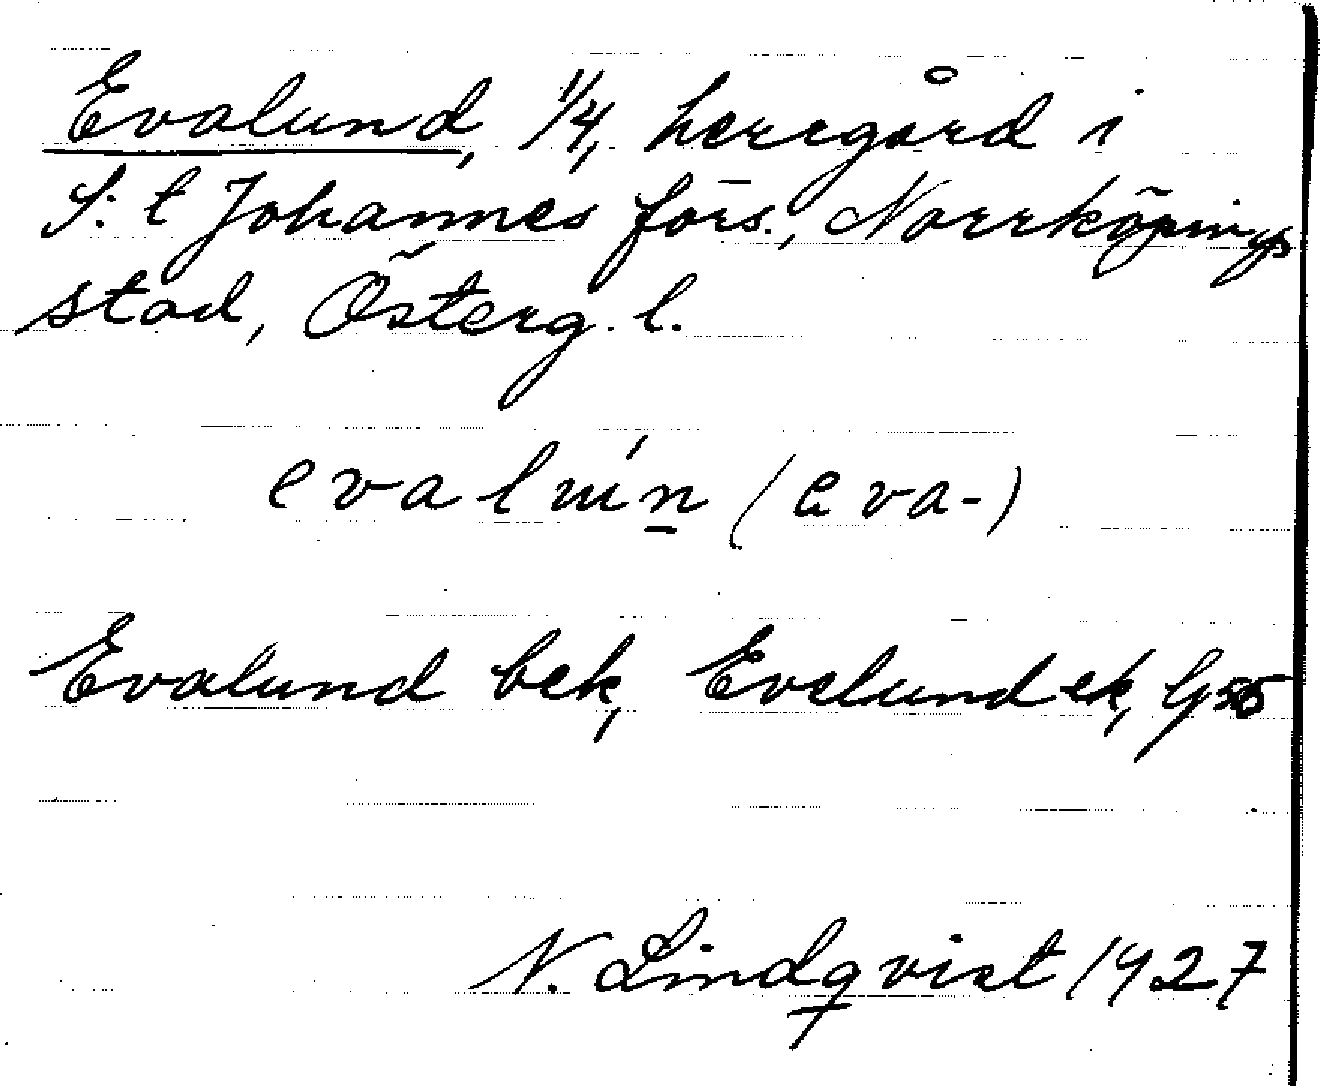 Evalund, 1/4, herregård i
S:t Johannes förs., Norrköpings
stad, Österg. l.
evalún (eva-)
Evalund bek, Evelund ek, G 55
N. Lindqvist 1927